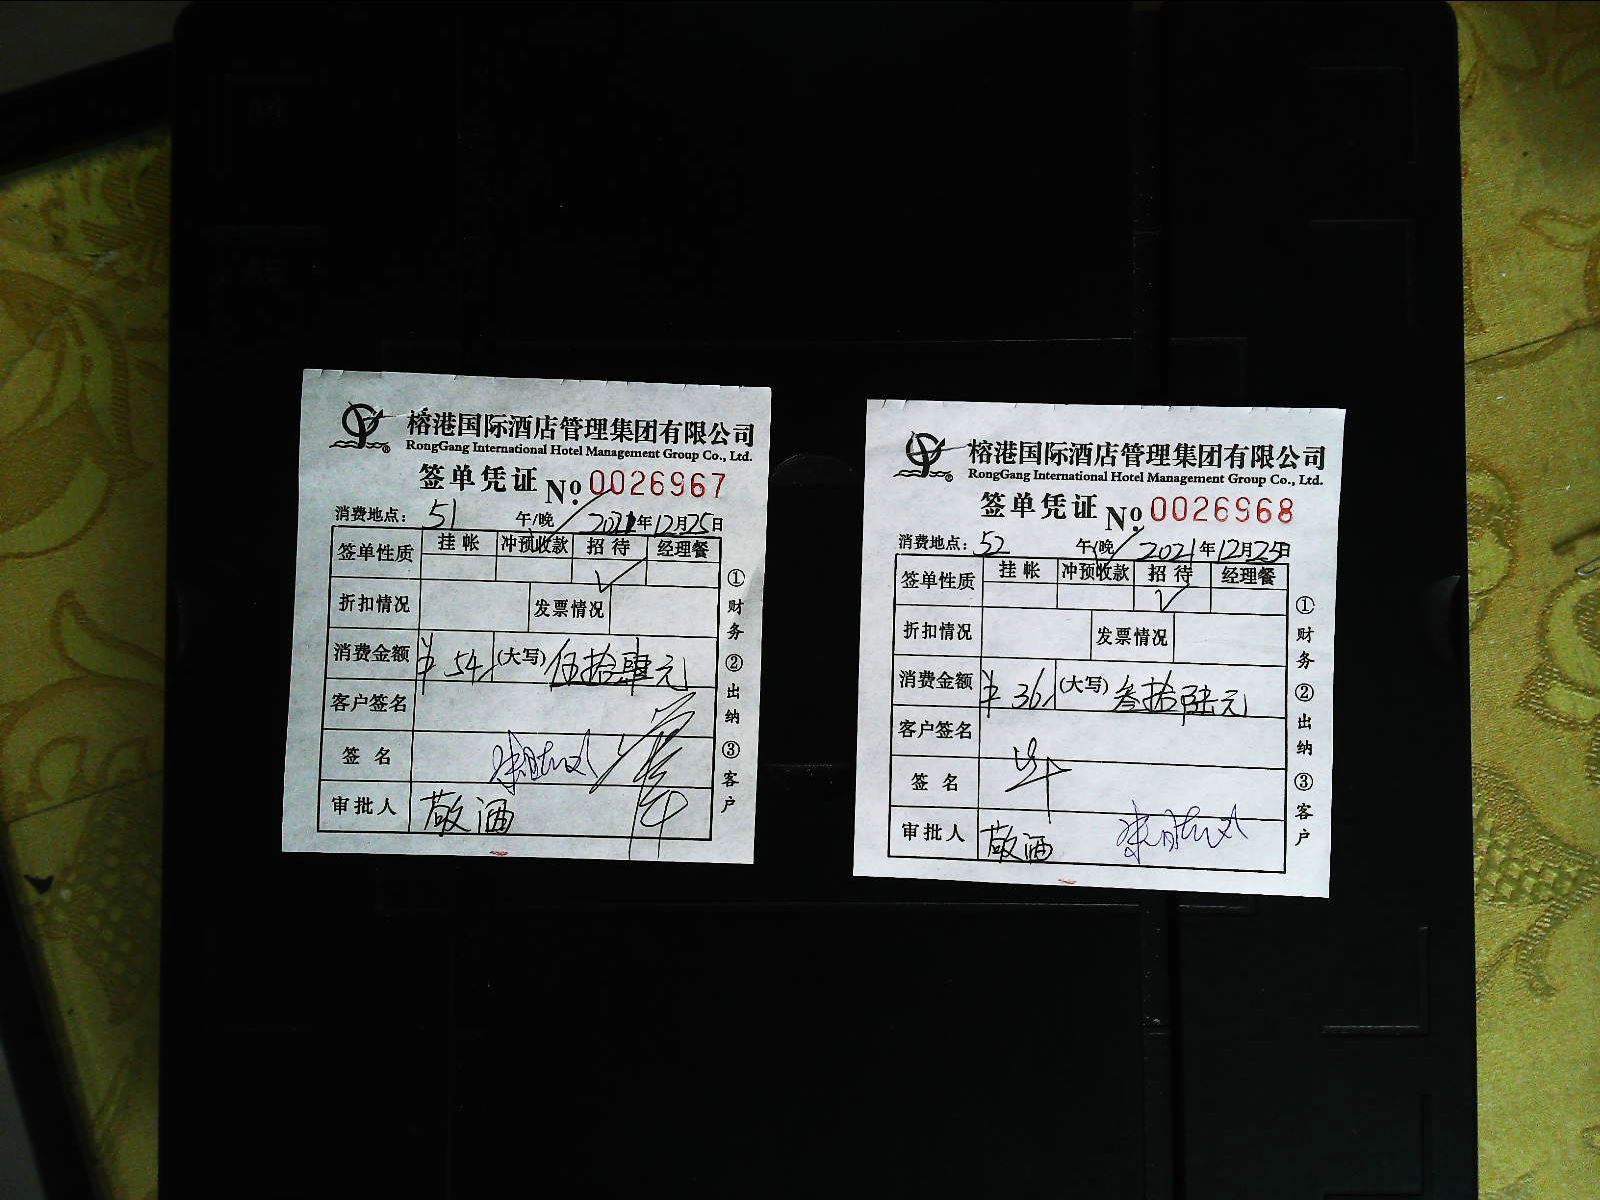 榕港国际酒店管理集团有限公司
RongGang International Hotel Management Group Co., Ltd.
签单凭证 No. 0026967
消费地点: 51 午/晚 2021年12月25日
签单性质 挂帐 冲预收款 招待 经理餐
折扣情况 发票情况
消费金额 ¥ 54 (大写) 伍拾肆元
客户签名
签名
审批人 敬酒
①财务 ②出纳 ③客户
榕港国际酒店管理集团有限公司
RongGang International Hotel Management Group Co., Ltd.
签单凭证 No. 0026968
消费地点: 52 午/晚 2021年12月25日
签单性质 挂帐 冲预收款 招待 经理餐
折扣情况 发票情况
消费金额 ¥ 36 (大写) 叁拾陆元
客户签名
签名
审批人 敬酒
①财务 ②出纳 ③客户